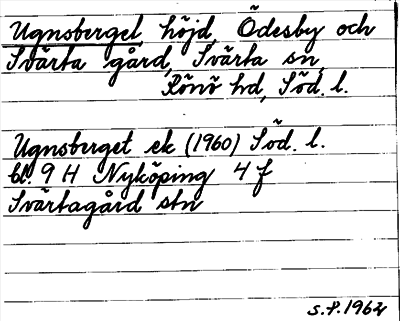 Ugnsberget, höjd, Ödesby och
Svärta gård, Svärta sn,
Rönö hd, Söd. l.
Ugnsberget ek (1960) Söd. l.
bl. 9 H Nyköping 4 f
Svärtagård stn
s.f. 1962